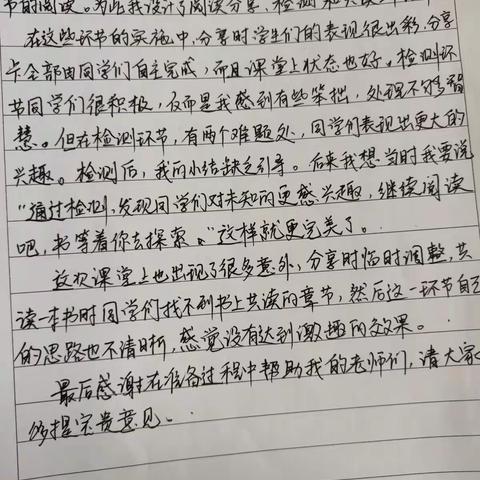 节的阅读。为此我设计了阅读分享、检测和共读
在这些环节的实施中,分享时学生们的表现很出彩,分享
卡全部由同学们自主完成,而且课堂上状态也好。检测环
节同学们很积极,反而是我感到有些笨拙,处理不够智
慧。但在检测环节,有两个难题处,同学们表现出更大的
兴趣。检测后,我的小结缺乏引导。后来我想当时我要说
“通过检测,发现同学们对未知的更感兴趣,继续阅读
吧,书等着你去探索。”这样就更完美了。
这次课堂上也出现了很多意外,分享时临时调整,共
读一本书时同学们找不到书上共读的章节,然后这一环节自己
的思路也不清晰,感觉没有达到激趣的效果。
最后感谢在准备过程中帮助我的老师们,请大家
多提宝贵意见。